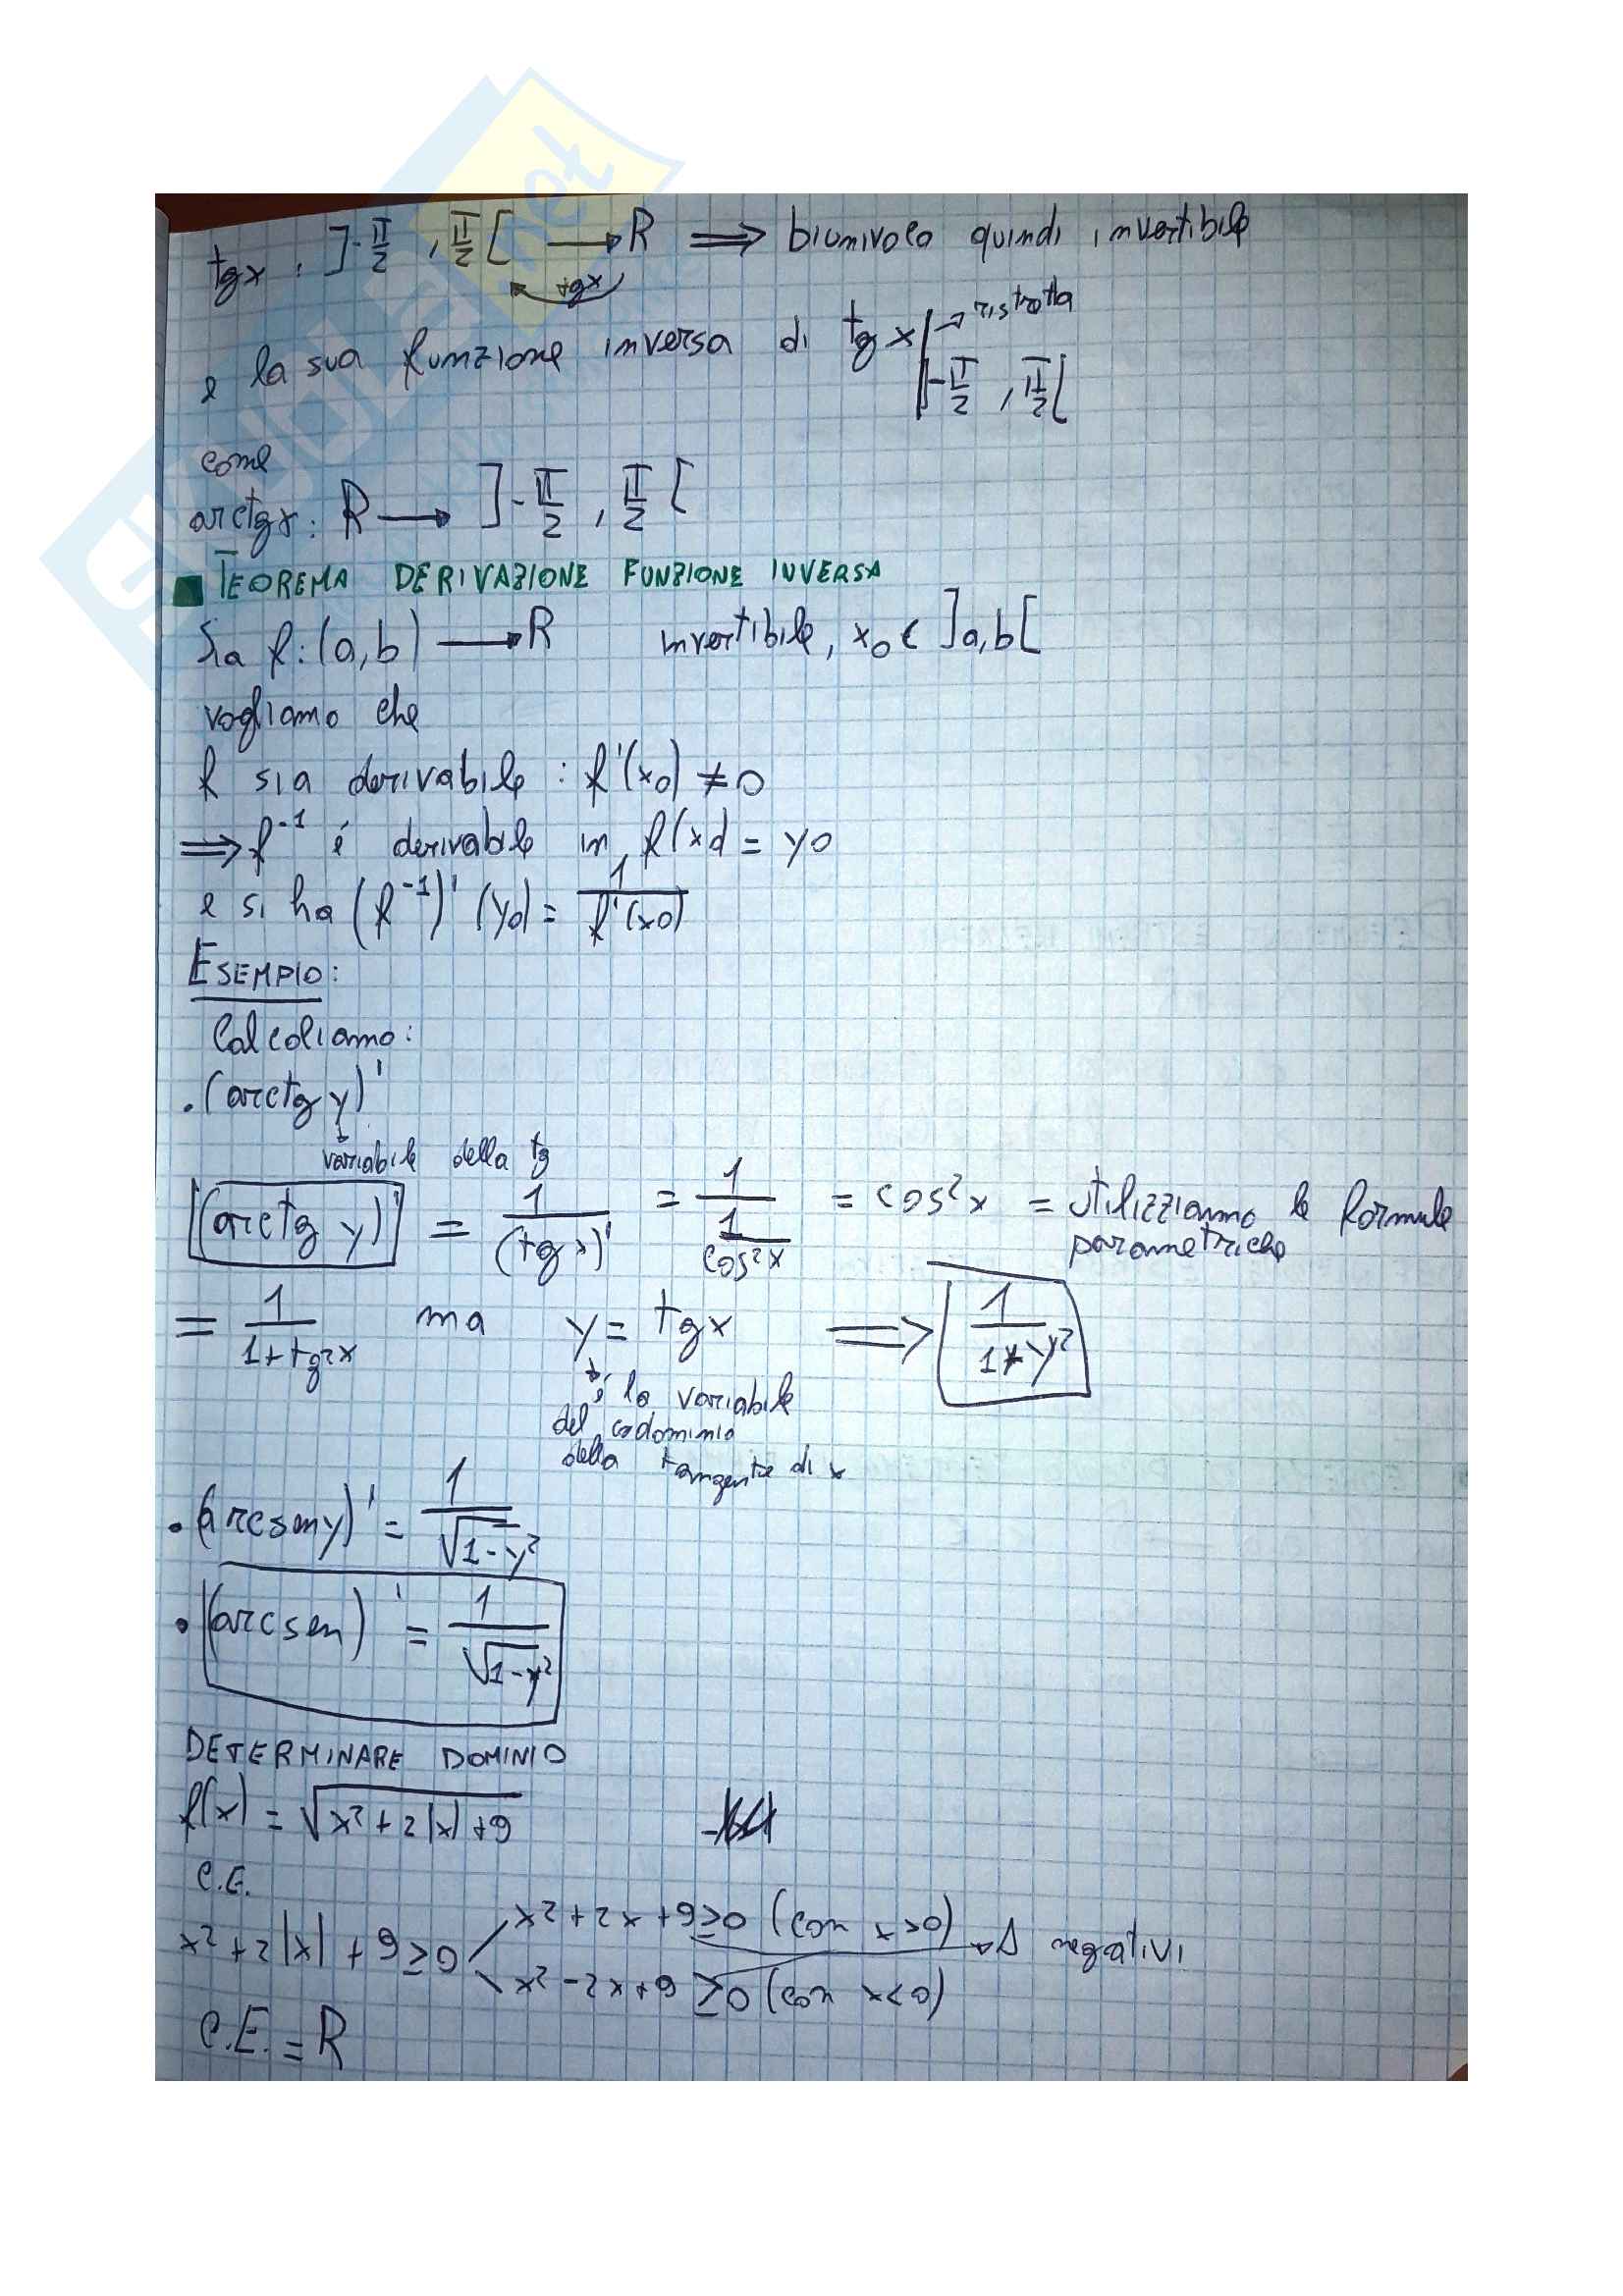 tgx : ]-π/2 , π/2 [ ⟶ R ⟹ biunivoca quindi invertibile
tgx
e la sua funzione inversa di tg x| → ristretta
]-π/2 , π/2[
come
arctgx: R ⟶ ]-π/2 , π/2 [
■ TEOREMA DERIVAZIONE FUNZIONE INVERSA
Sia f:(a,b) ⟶ R invertibile, x0 ∈ ]a,b[
vogliamo che
f sia derivabile : f'(x0) ≠ 0
⟹ f^-1 é derivabile in f(x0) = y0
e si ha (f^-1)' (y0) = 1/f'(x0)
ESEMPIO:
Calcoliamo:
. (arctg y)'
variabile della tg
(arctg y)' = 1/(tg x)' = 1/(1/cos²x) = cos²x = utilizziamo le formule
parametriche
= 1/(1+tg²x) ma y = tgx ⟹ 1/(1+y²)
é la variabile
del codominio
della tangente di x
. (arcseny)' = 1/√(1-y²)
. (arcsen)' = 1/√(1-y²)
DETERMINARE DOMINIO
f(x) = √(x²+2|x|+9)
C.E.
x²+2|x|+9≥0 x²+2x+9≥0 (con x>0) → Δ negativi
x²-2x+9 ≥0 (con x<0)
C.E. = R